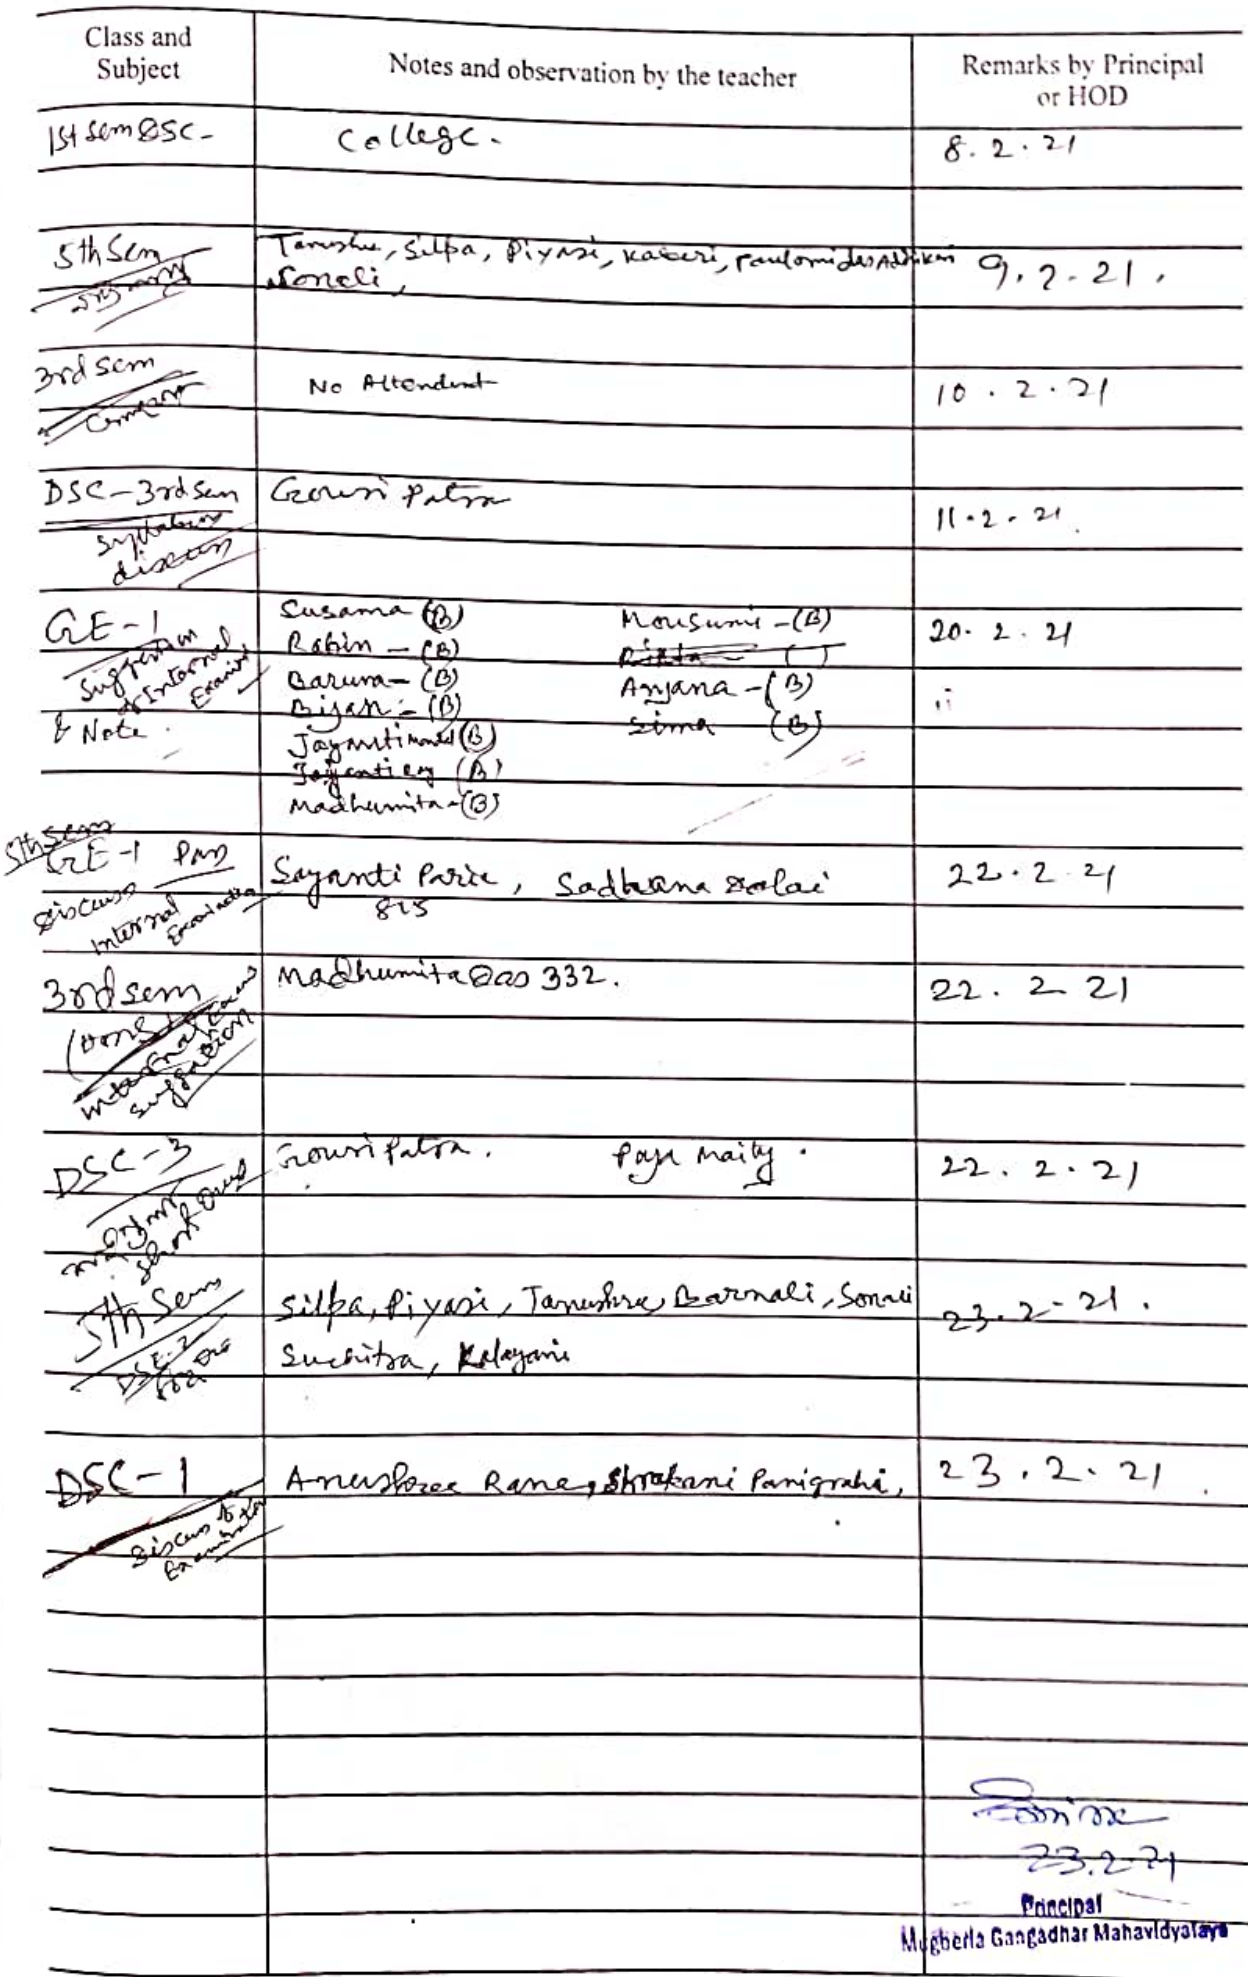 Class and
Subject
Notes and observation by the teacher
Remarks by Principal
or HOD
1st Sem DSC -
College.
8. 2. 21
5th Sem
Tanushre, Silpa, Piyasi, Kaberi, Paulomi das Adhikari
Sonali,
9. 2. 21.
3rd Sem
No Attendent
10. 2. 21
DSC - 3rd Sem
Syllabus
discuss
Gouri Patra
11. 2. 21.
GE - 1
Suggestion
of Internal
Exam
& Note.
Susama (B)
Mousumi - (B)
20. 2. 21
Rabin - (B)
Baruna - (B)
Anjana - (B)
Bijan - (B)
Sima (B)
Jayanti (B)
Jayanti Roy (B)
Madhumita - (B)
5th Sem
GE - 1
Discuss
Internal
Examination
Sayanti Paria, Sadhana Dalai
815
22. 2. 21
3rd Sem
(Hons)
Internal Exam
Suggestion
Madhumita Das 332.
22. 2. 21
DSC - 3
Short Ques
Gouri Patra. Puja Maity.
22. 2. 21
5th Sem
DSE-2
Silpa, Piyasi, Tanushre, Barnali, Sonali
Suchitra, Kalayani
23. 2 - 21.
DSC - 1
Discuss to
Examination
Anushree Rana, Shrabani Panigrahi,
23. 2. 21
23.2.21
Principal
Mugberia Gangadhar Mahavidyalaya